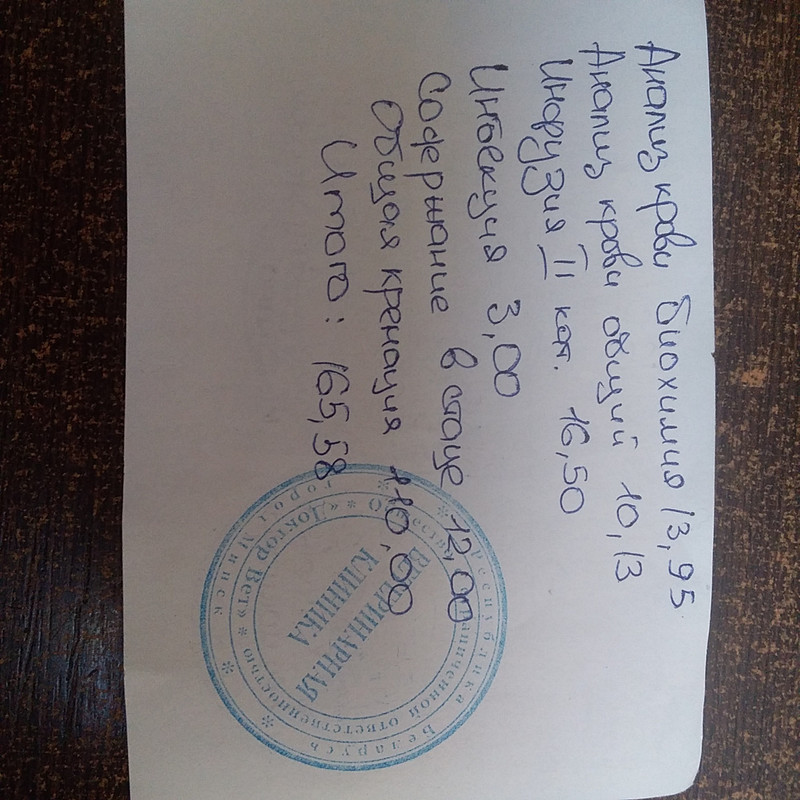 Анализ крови биохимия 13,95
Анализ крови общий 10,13
Инфузия II кат. 16,50
Инъекция 3,00
Содержание в стаце 12,00
Общая кремация 110,00
Итого: 165,58
Республика Беларусь * город Минск *
Общество с ограниченной ответственностью * «Доктор Вет» *
ВЕТЕРИНАРНАЯ
КЛИНИКА